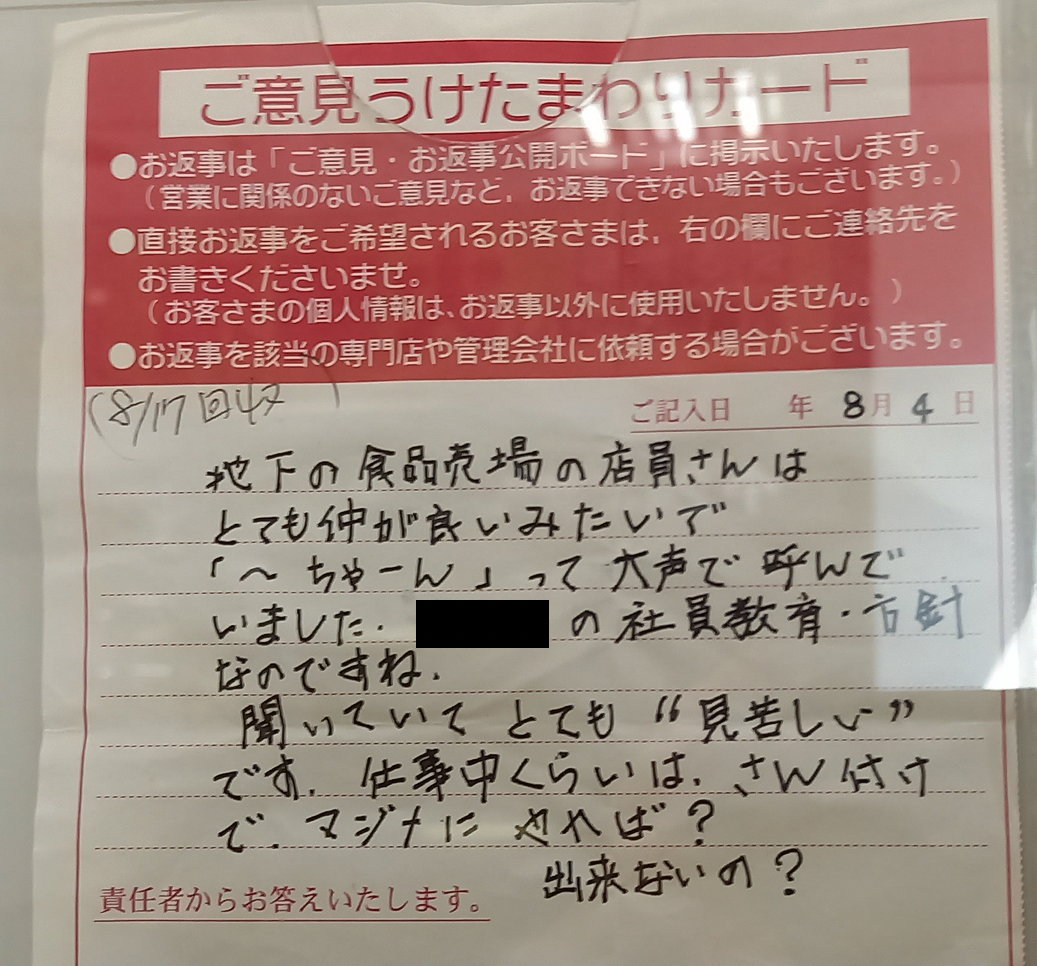 ご意見うけたまわりカード
●お返事は「ご意見・お返事公開ボード」に掲示いたします。
（営業に関係のないご意見など、お返事できない場合もございます。）
●直接お返事をご希望されるお客さまは、右の欄にご連絡先を
お書きくださいませ。
（お客さまの個人情報は、お返事以外に使用いたしません。）
●お返事を該当の専門店や管理会社に依頼する場合がございます。
(8/17回収)
ご記入日 年 8月 4日
地下の食品売場の店員さんは
とても仲が良いみたいで
「〜ちゃーん」って大声で呼んで
いました. の社員教育・方針
なのですね.
聞いていてとても“見苦しい”
です. 仕事中くらいは、さん付け
で、マジナにやれば?
出来ないの?
責任者からお答えいたします。